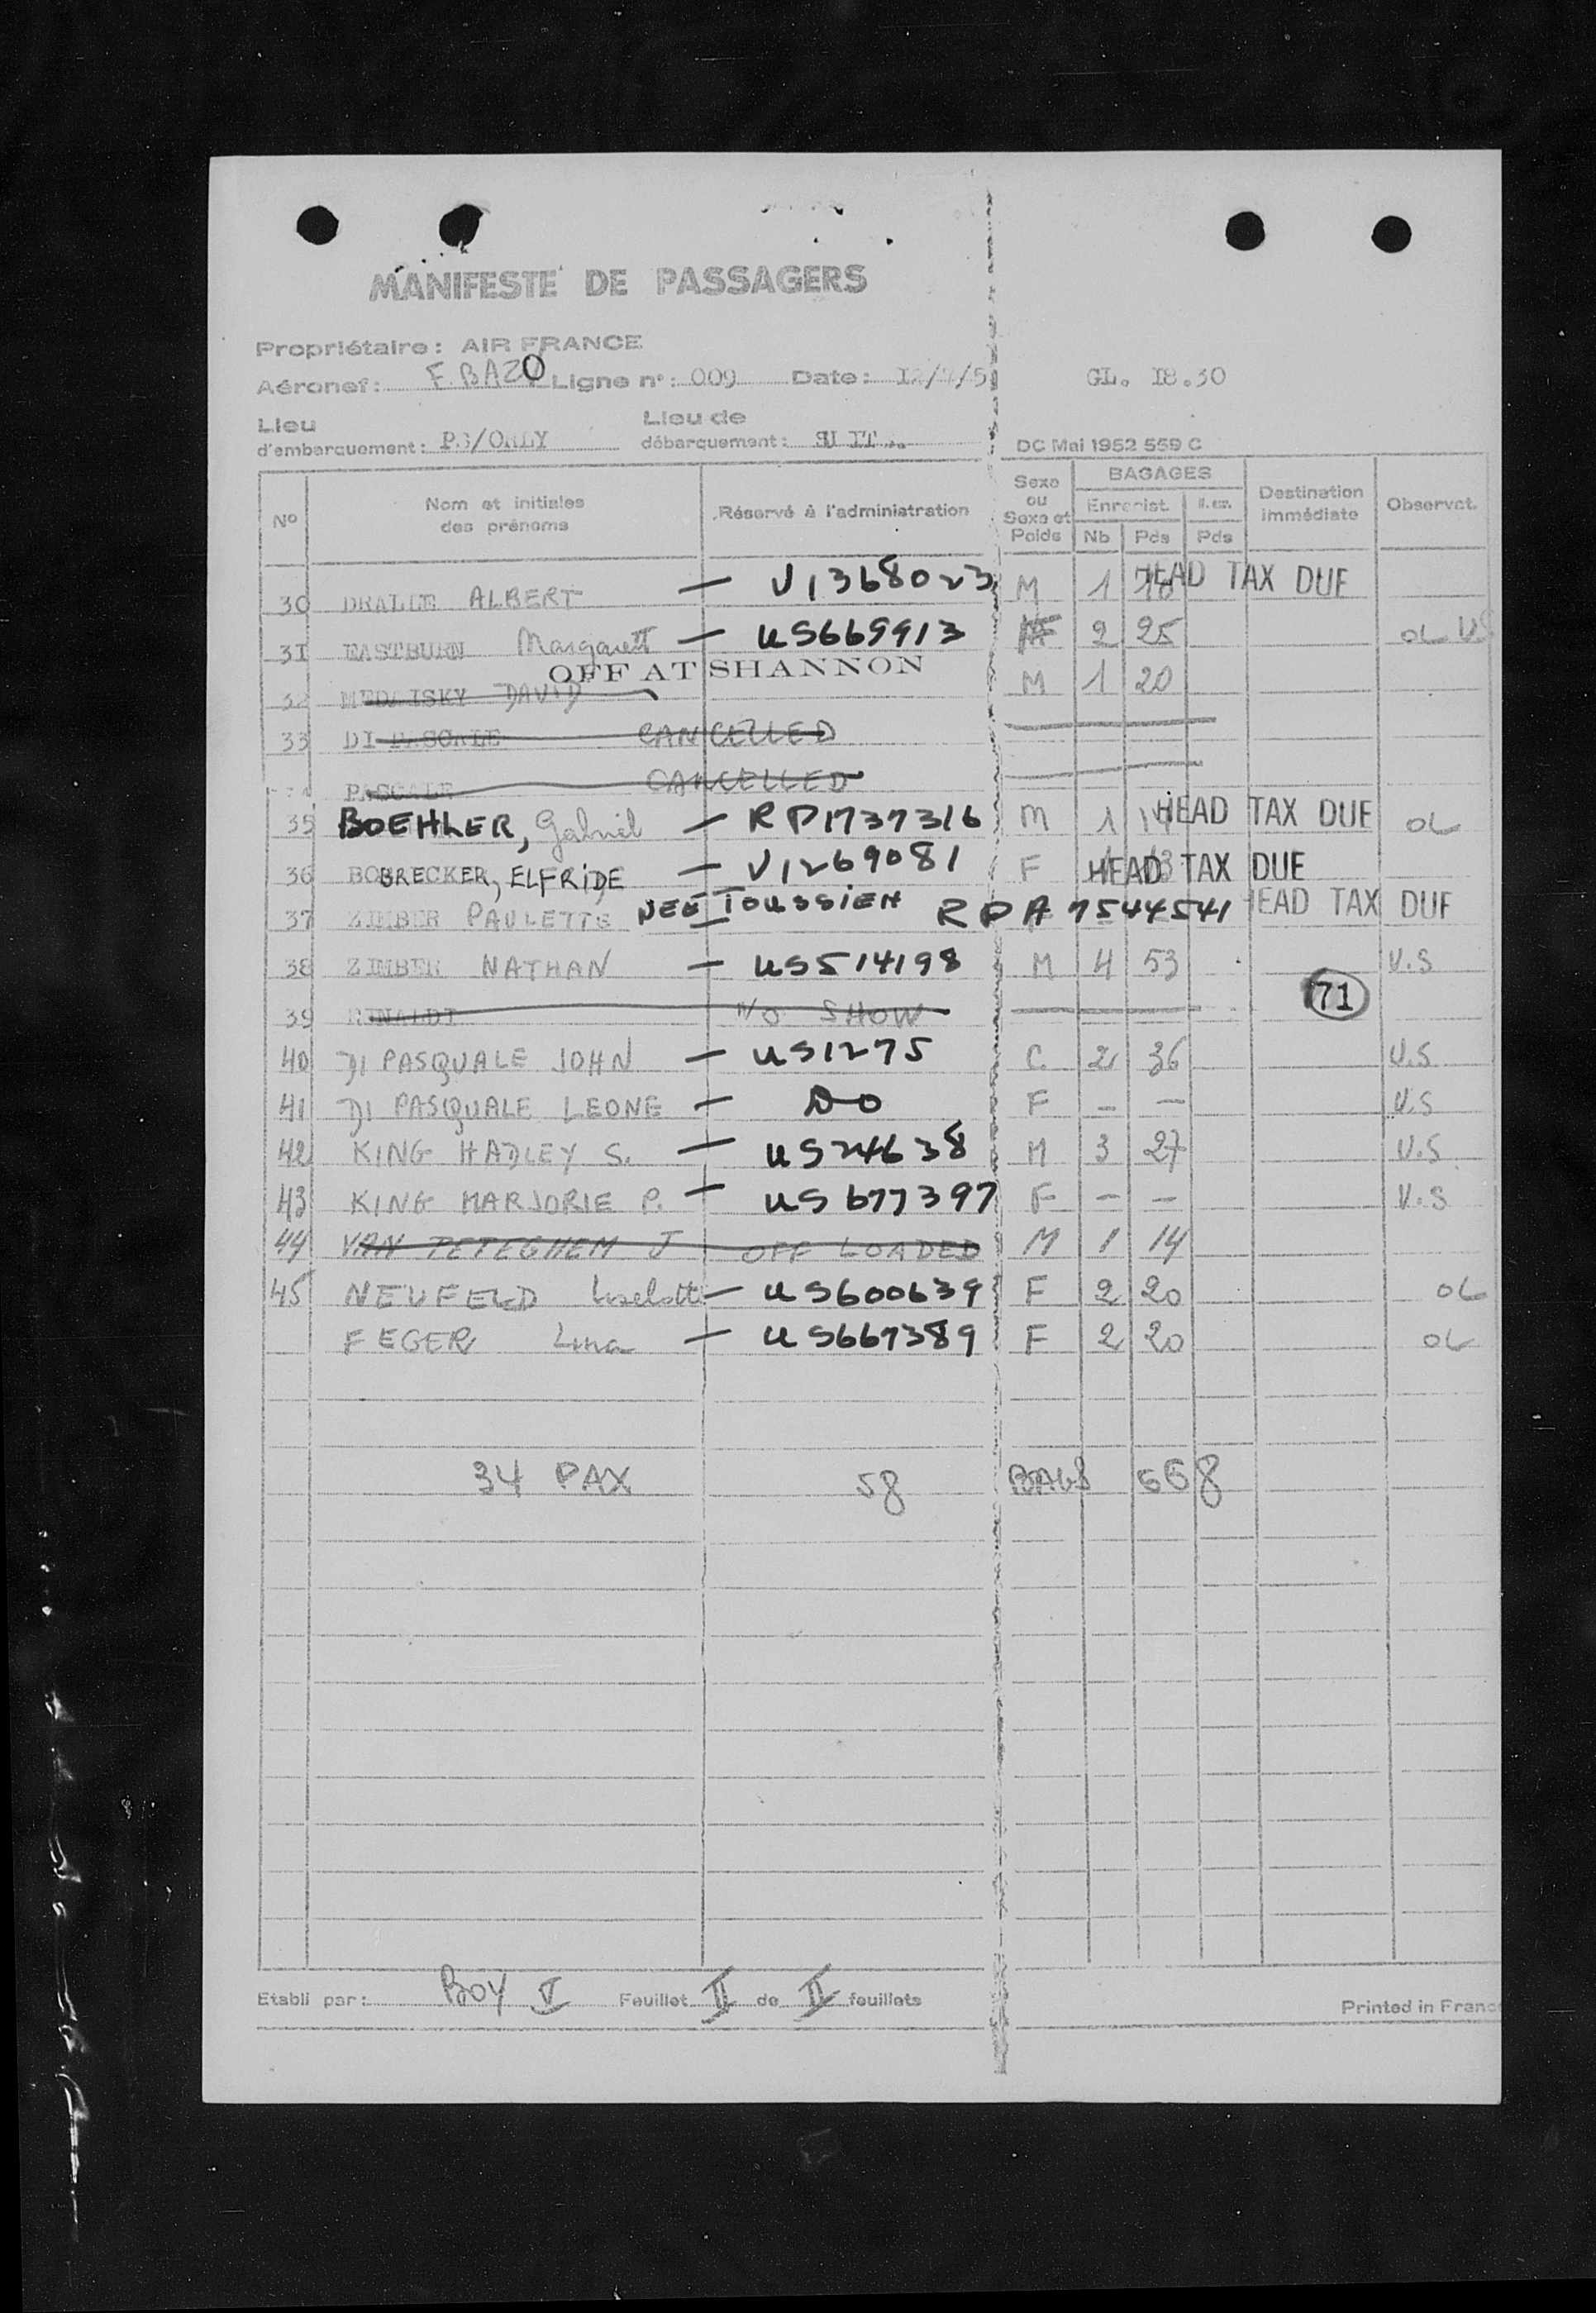 MANIFESTE DE PASSAGERS
Propriétaire: AIR FRANCE
Aéronef: F.BAZO Ligne n°: 009 Date: GL. I8.30
Lieu d'embarquement: PB/ORLY Lieu de débarquement:
DC Mai 1952 559 C
N° Nom et initiales des prénoms Réservé à l'administration Sexe ou Sexe et Poids BAGAGES Enregist. Nb Pds Pds Destination immédiate Observat.
30 DRALLE ALBERT — V1368023 M 1 HEAD TAX DUE
3I EASTBURN Margarett — US669913 F 2 25 OL
OFF AT SHANNON
32 MEDAISKY DAVID M 1 20
33 DI PASCALE CANCELLED
PASCALE CANCELLED
35 BOEHLER, Gabriel — RP1737316 M 1 HEAD TAX DUE OL
36 BOBRECKER, ELFRIDE — V1269081 F HEAD TAX DUE
37 ZIMBER PAULETTE NEE TOUSSIEH — RPA7544541 HEAD TAX DUE
38 ZIMBER NATHAN — US514198 M 4 53 U.S
39 RINALDI N/O SHOW
71
40 DI PASQUALE JOHN — US1275 C. 2 36 U.S
41 DI PASQUALE LEONE — DO F — — U.S
42 KING HADLEY S. — US24638 M 3 27 U.S.
43 KING MARJORIE P. — US677397 F — — U.S
44 VAN PETEGHEM J OFF LOADED M 1 14
45 NEUFELD Liselotte — US600639 F 2 20 OL
FEGER Lina — US667389 F 2 20 OL
34 PAX 58 BAGS 568
Etabli par: BOY V Feuillet II de II feuillets
Printed in Franc